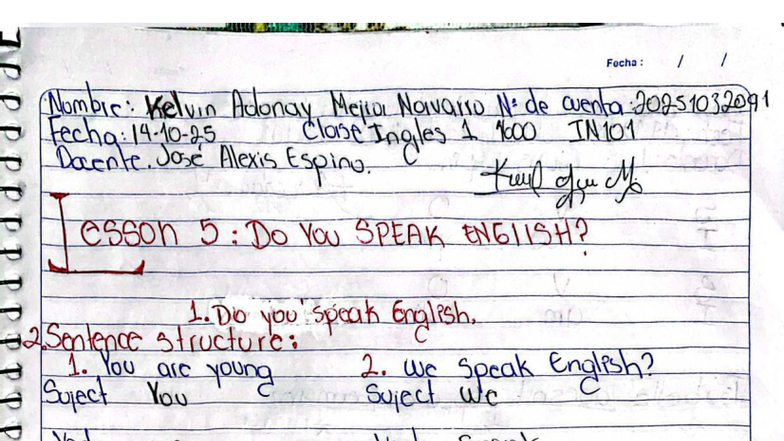 Fecha: / /
Nombre: Kelvin Adonay Mejia Navarro Nº de cuenta: 20251032091
Fecha: 14-10-25 Clase Ingles 1 1600 IN101
Docente. José Alexis Espino.
Lesson 5: Do You SPEAK ENGlISH?
1. Do you speak English.
2. Sentence structure:
1. You are young 2. We Speak English?
Suject You Suject We